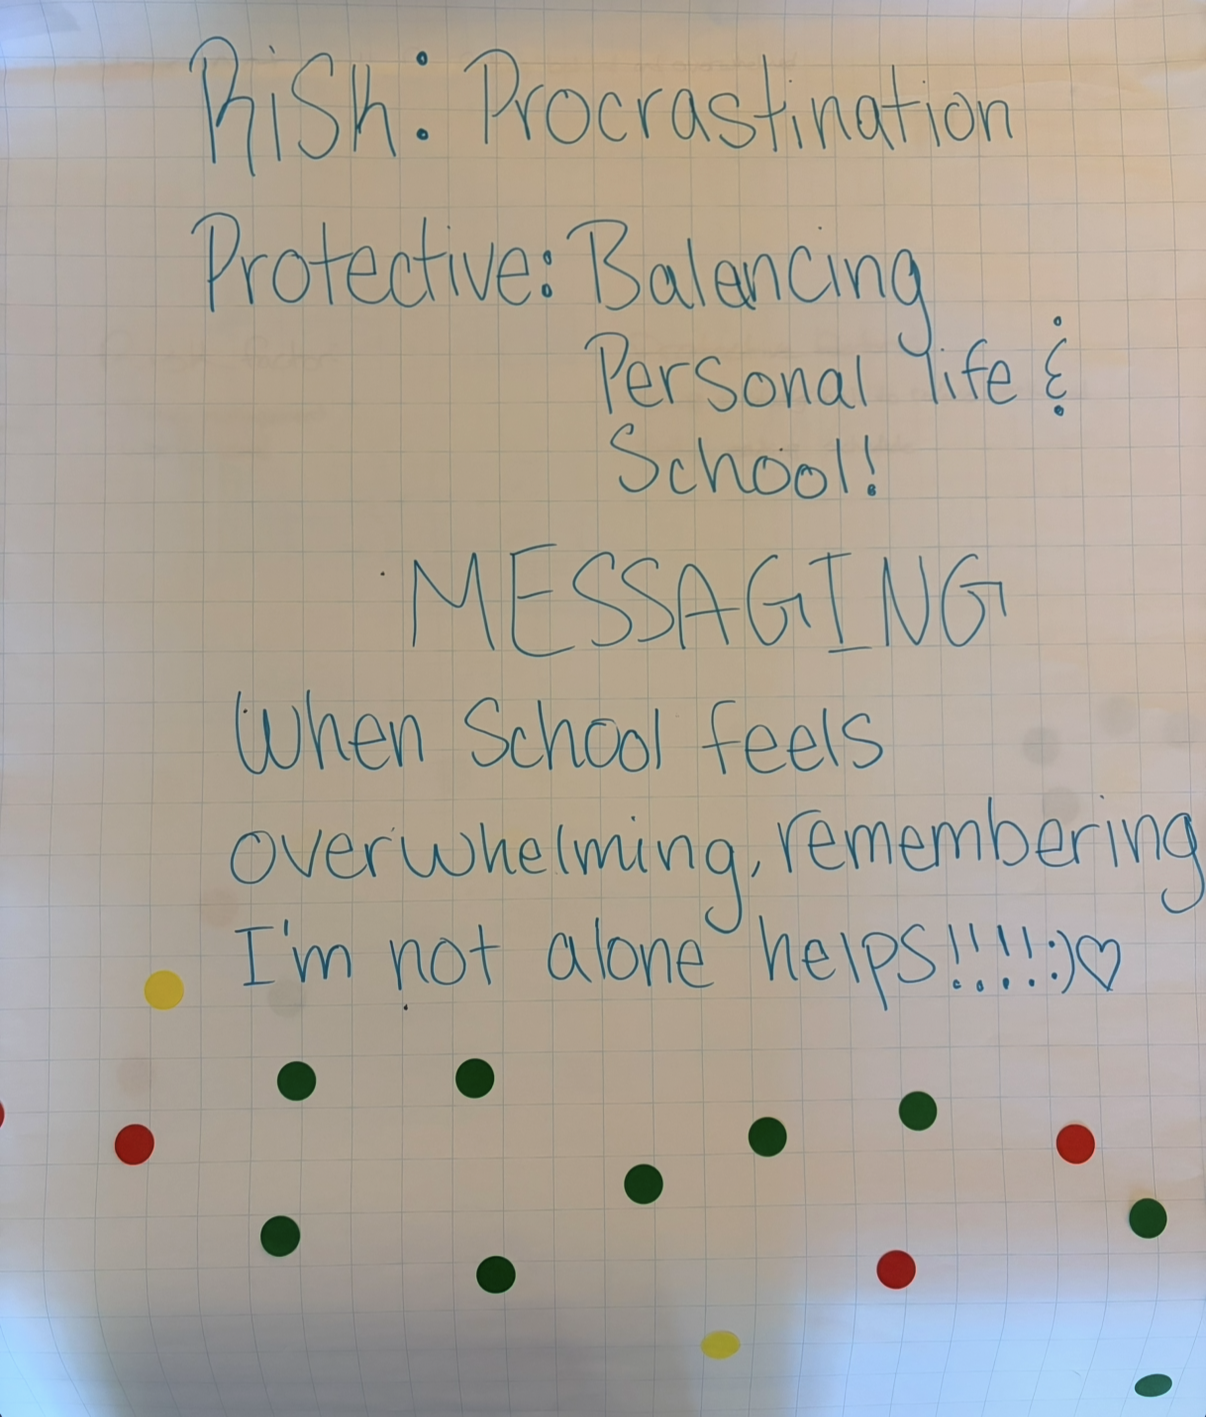 Risk: Procrastination
Protective: Balancing
Personal life &
School!
MESSAGING
When School feels
overwhelming, remembering
I'm not alone helps!!!!:)♡